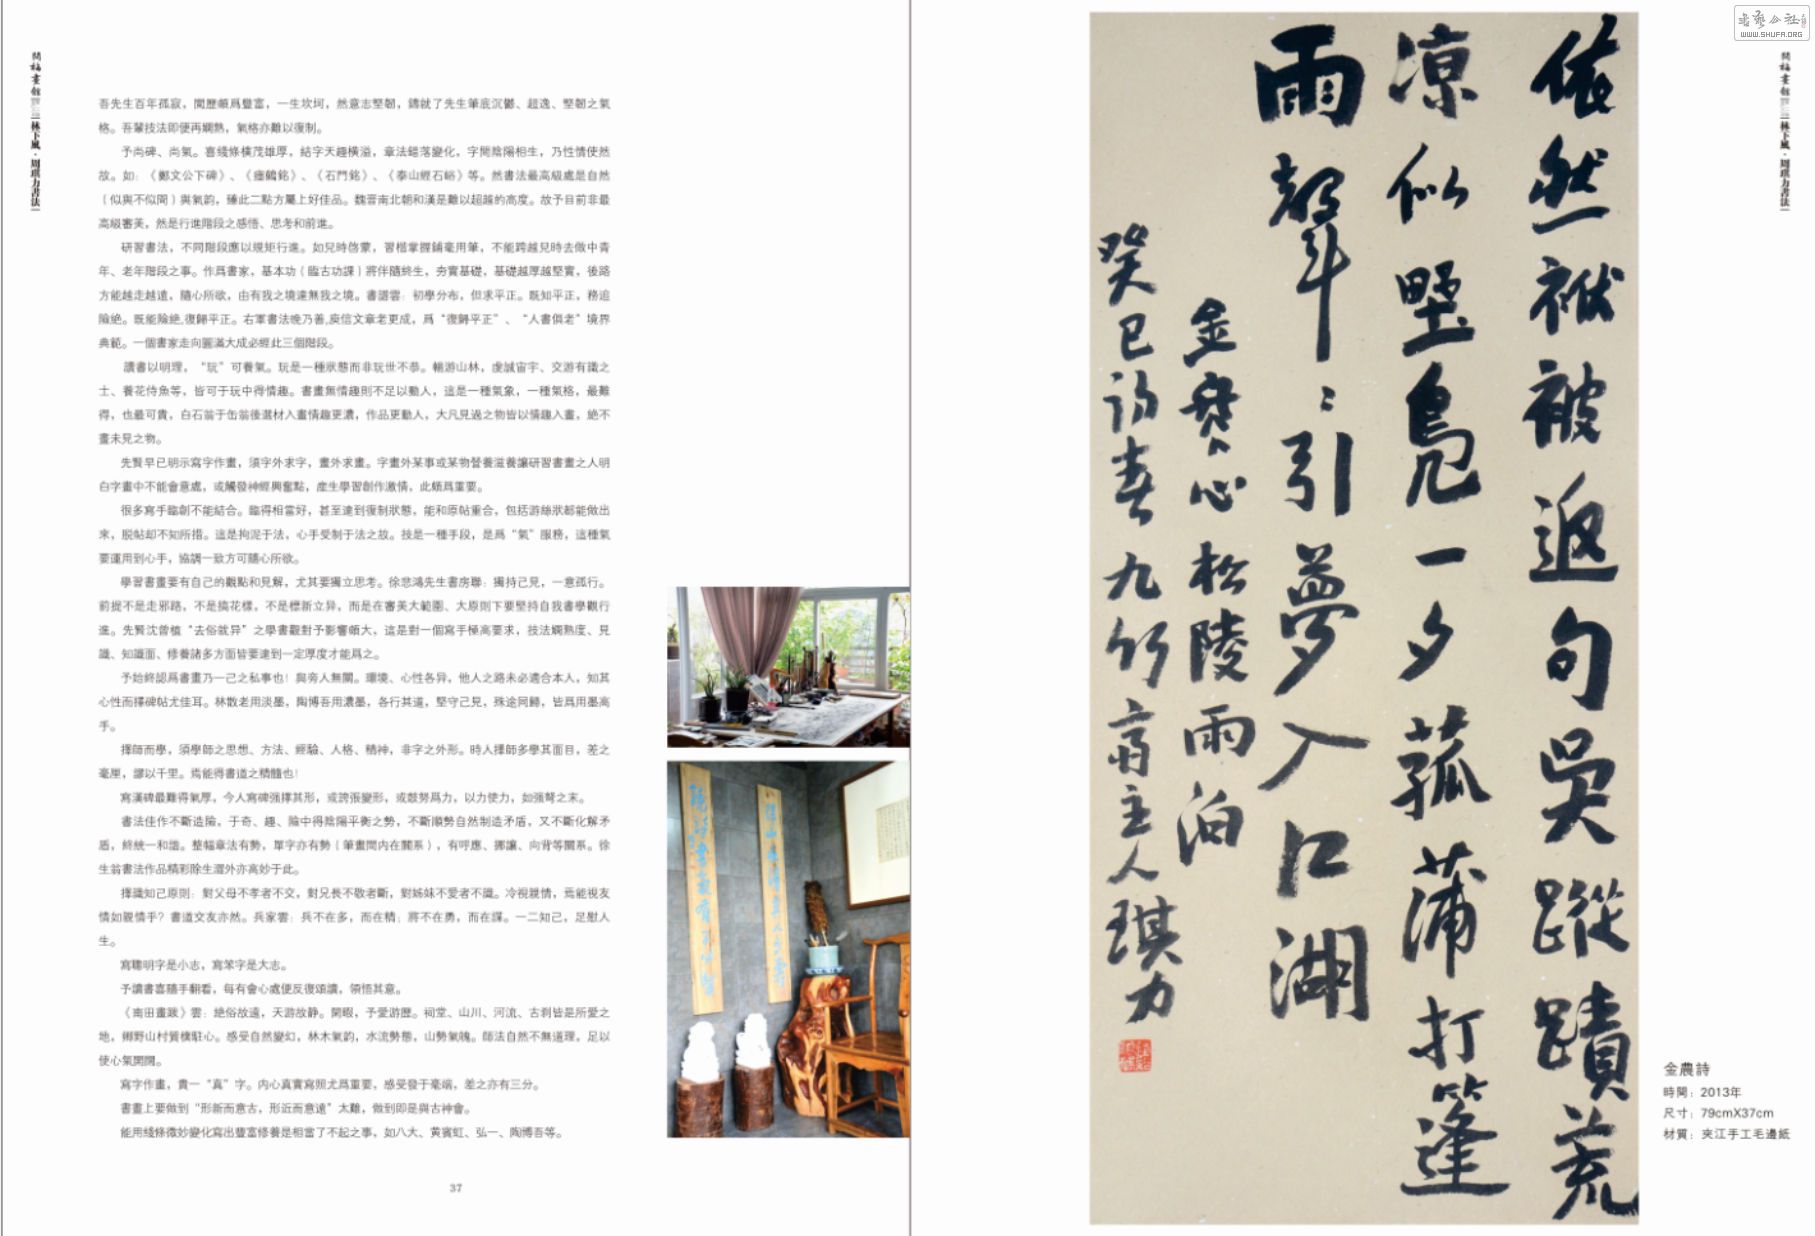 林下風·周琪力書法
吾先生百年孤寂，閱歷頗爲豐富，一生坎坷，然意志堅韌，鑄就了先生筆底沉鬱、超逸、堅韌之氣
格。吾輩技法即便再嫻熟，氣格亦難以復制。
予尚碑、尚氣。喜綫條樸茂雄厚，結字天趣橫溢，章法錯落變化，字間陰陽相生，乃性情使然
故。如：《鄭文公下碑》、《瘞鶴銘》、《石門銘》、《泰山經石峪》等。然書法最高級處是自然
（似與不似間）與氣韵，臻此二點方屬上好佳品。魏晋南北朝和漢是難以超越的高度。故予目前非最
高級審美，然是行進階段之感悟、思考和前進。
研習書法，不同階段應以規矩行進。如兒時啓蒙，習楷掌握鋪毫用筆，不能跨越兒時去做中青
年、老年階段之事。作爲書家，基本功（臨古功課）將伴隨終生，夯實基礎，基礎越厚越堅實，後路
方能越走越遠，隨心所欲，由有我之境達無我之境。書譜雲：初學分布，但求平正。既知平正，務追
險絶。既能險絶,復歸平正。右軍書法晚乃善,庾信文章老更成，爲“復歸平正”、“人書俱老”境界
典範。一個書家走向圓滿大成必經此三個階段。
讀書以明理，“玩”可養氣。玩是一種狀態而非玩世不恭。暢游山林，虔誠宙宇、交游有識之
士、養花侍魚等，皆可于玩中得情趣。書畫無情趣則不足以動人，這是一種氣象，一種氣格，最難
得，也最可貴，白石翁于缶翁後選材入畫情趣更濃，作品更動人，大凡見過之物皆以情趣入畫，絶不
畫未見之物。
先賢早已明示寫字作畫，須字外求字，畫外求畫。字畫外某事或某物營養滋養讓研習書畫之人明
白字畫中不能會意處，或觸發神經興奮點，産生學習創作激情，此頗爲重要。
很多寫手臨創不能結合。臨得相當好，甚至達到復制狀態，能和原帖重合，包括游絲狀都能做出
來，脱帖却不知所措。這是拘泥于法，心手受制于法之故。技是一種手段，是爲“氣”服務，這種氣
要運用到心手，協調一致方可隨心所欲。
學習書畫要有自己的觀點和見解，尤其要獨立思考。徐悲鴻先生書房聯：獨持己見，一意孤行。
前提不是走邪路，不是搞花樣，不是標新立异，而是在審美大範圍、大原則下要堅持自我書學觀行
進。先賢沈曾植“去俗就异”之學書觀對予影響頗大，這是對一個寫手極高要求，技法嫻熟度、見
識、知識面、修養諸多方面皆要達到一定厚度才能爲之。
予始終認爲書畫乃一己之私事也！與旁人無關。環境、心性各异，他人之路未必適合本人，知其
心性而擇碑帖尤佳耳。林散老用淡墨，陶博吾用濃墨，各行其道，堅守己見，殊途同歸，皆爲用墨高
手。
擇師而學，須學師之思想、方法、經驗、人格、精神，非字之外形。時人擇師多學其面目，差之
毫厘，謬以千里。焉能得書道之精髓也！
寫漢碑最難得氣厚，今人寫碑强擇其形，或誇張變形，或鼓努爲力，以力使力，如强弩之末。
書法佳作不斷造險，于奇、趣、險中得陰陽平衡之勢，不斷順勢自然制造矛盾，又不斷化解矛
盾，終統一和諧。整幅章法有勢，單字亦有勢（筆畫間内在關系），有呼應、挪讓、向背等關系。徐
生翁書法作品精彩除生澀外亦高妙于此。
擇識知己原則：對父母不孝者不交，對兄長不敬者斷，對姊妹不愛者不識。冷視親情，焉能視友
情如親情乎？書道交友亦然。兵家雲：兵不在多，而在精；將不在勇，而在謀。一二知己，足慰人
生。
寫聰明字是小志，寫笨字是大志。
予讀書喜隨手翻看，每有會心處便反復頌讀，領悟其意。
《南田畫跋》雲：絶俗故遠，天游故静。閑暇，予愛游歷。祠堂、山川、河流、古刹皆是所愛之
地，鄉野山村質樸駐心。感受自然變幻，林木氣韵，水流勢態，山勢氣魄。師法自然不無道理，足以
使心氣開闊。
寫字作畫，貴一“真”字。内心真實寫照尤爲重要，感受發于毫端，差之亦有三分。
書畫上要做到“形新而意古，形近而意遠”太難，做到即是與古神會。
能用綫條微妙變化寫出豐富修養是相當了不起之事，如八大、黄賓虹、弘一、陶博吾等。
37
依然袱被返句吳蹤蹟荒
凉似野鳧一夕菰蒲打篷
雨聲ミ引夢入江湖
金壽心松陵雨泊
癸巳初春九竹齋主人琪力
金農詩
時間：2013年
尺寸：79cmX37cm
材質：夾江手工毛邊紙
林下風·周琪力書法
WWW.SHUFA.ORG